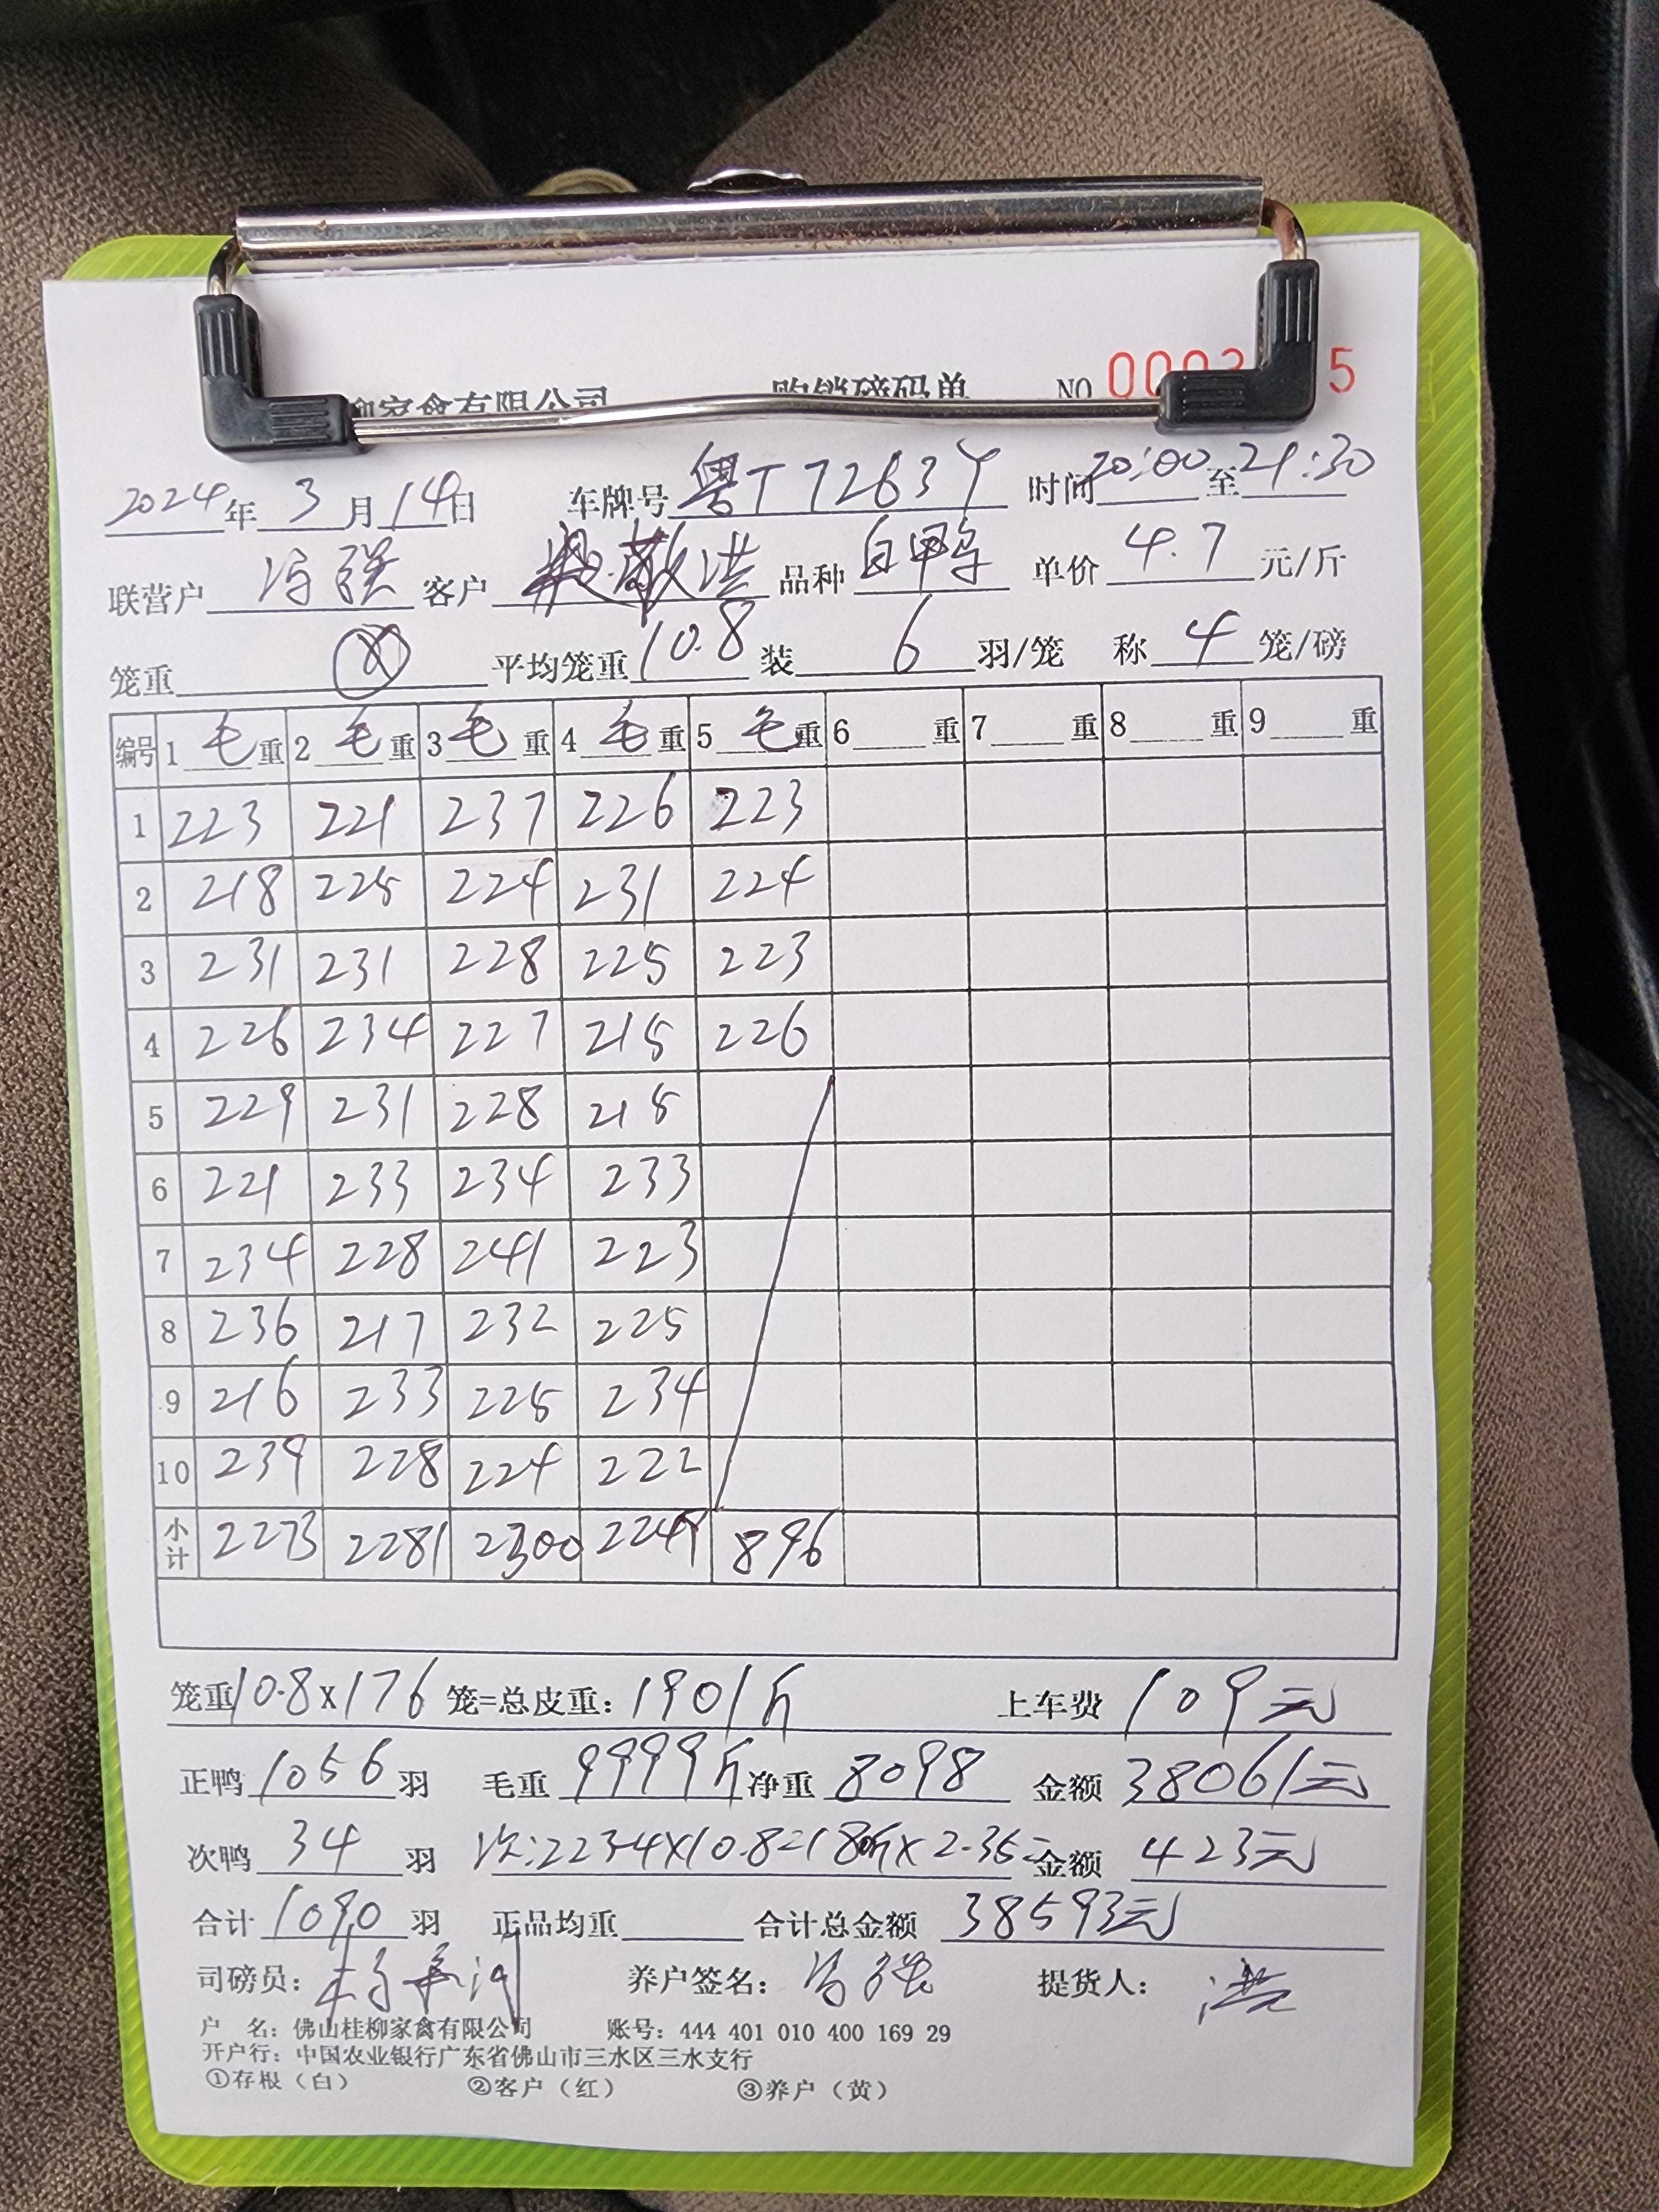 柳家禽有限公司 购销磅码单 NO 0003 5
2024年3月14日 车牌号粤T7263Y 时间20:00至21:30
联营户冯强 客户 敬洪 品种白鸭 单价4.7元/斤
笼重 平均笼重10.8装6羽/笼 称4笼/磅
编号 1毛重 2毛重 3毛重 4毛重 5毛重 6 重 7 重 8 重 9 重
1 223 221 237 226 223
2 218 225 224 231 224
3 231 231 228 225 223
4 226 234 227 215 226
5 229 231 228 215
6 221 233 234 233
7 234 228 241 223
8 236 217 232 225
9 216 233 225 234
10 239 228 224 222
小计 2273 2281 2300 2249 896
笼重10.8x176笼=总皮重:1901斤 上车费109元
正鸭1056羽 毛重9999斤净重8098 金额38061元
次鸭34羽 次:223-4X10.8=180斤X2.35=金额423元
合计1090羽 正品均重 合计总金额38593元
司磅员: 养户签名:冯强 提货人:洪
户 名: 佛山桂柳家禽有限公司 账号: 444 401 010 400 169 29
开户行: 中国农业银行广东省佛山市三水区三水支行
①存根(白) ②客户(红) ③养户(黄)